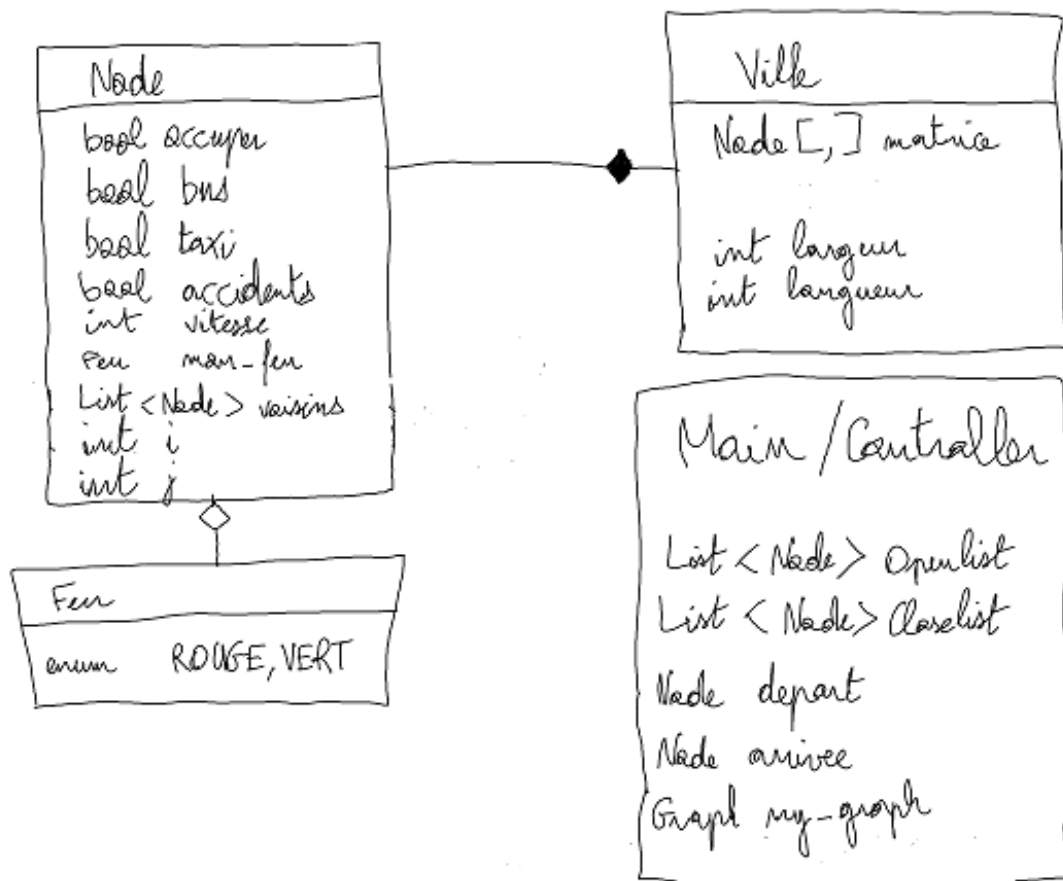 Node
bool occuper
bool bus
bool taxi
bool accidents
int vitesse
Feu mon_feu
List <Node> voisins
int i
int j
Feu
enum ROUGE, VERT
Ville
Node [,] matrice
int largeur
int longueur
Main / Controller
List <Node> Openlist
List <Node> Closelist
Node depart
Node arrivee
Graph my_graph